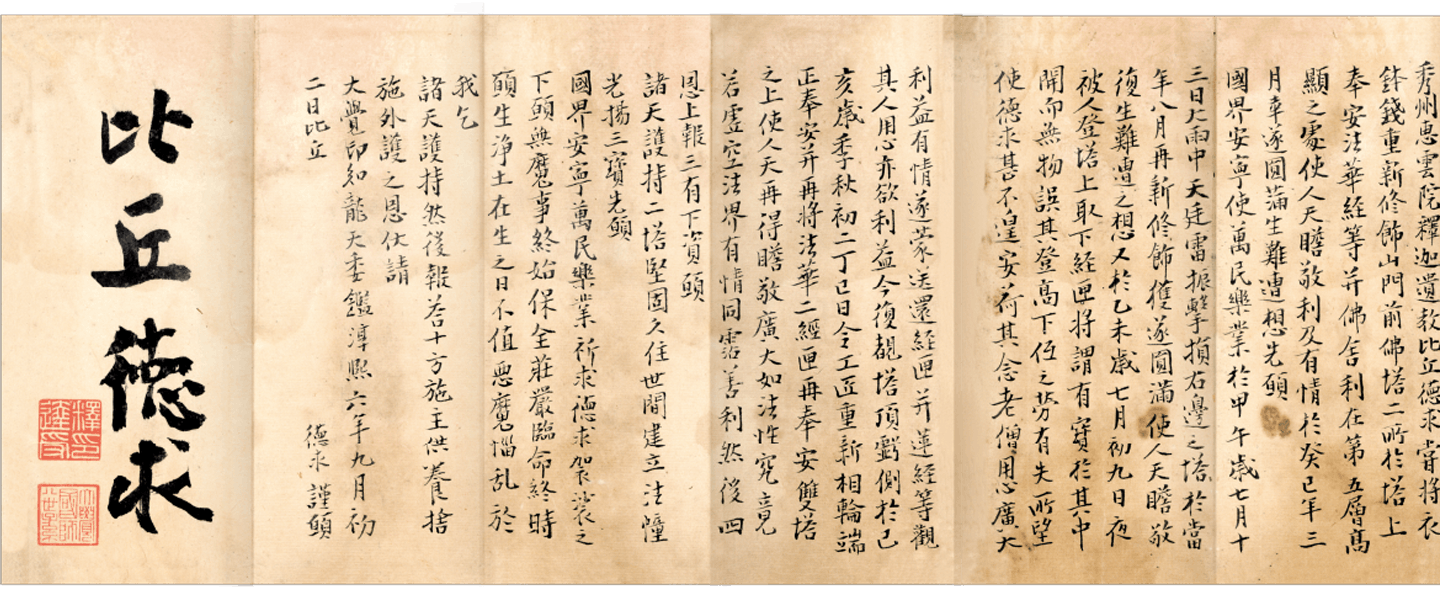 秀州惠雲院釋迦遺教比丘德求嘗將衣
鉢錢重新修飾山門前佛塔二所於塔上
奉安法華経等并佛舍利在第五層高
顯之處使人天瞻敬利及有情於癸巳年三
月幸遂圓滿生難遭想先願
國界安寧使萬民樂業於甲午歲七月十
三日大雨中天廷雷振擊損右邊之塔於當
年八月再新修飾獲遂圓滿使人天瞻敬
復生難遭之想又於乙未歲七月初九日夜
被人登塔上取下経匣將謂有寳於其中
開而無物誤其登高下低之勞有失所望
使德求甚不遑安荷其念老僧用心廣大
利益有情遂蒙送還経匣并蓮経等觀
其人用心亦欲利益今復覩塔頂虧側於己
亥歲季秋初二丁巳日令工匠重新相輪端
正奉安并再將法華二經匣再奉安雙塔
之上使人天再得瞻敬廣大如法性究竟
若虛空法界有情同霑善利然後四
恩上報三有下資願
諸天護持二塔堅固久住世間建立法幢
光揚三寳先願
國界安寧萬民樂業祈求德求袈裟之
下願無魔事終始保全莊嚴臨命終時
願生淨土在生之日不值惡魔惱乱於
我乞
諸天護持然後報荅十方施主供養捨
施外護之恩伏請
大覺印知龍天委鑑淳熙六年九月初
二日比丘 德求 謹願
比丘德求